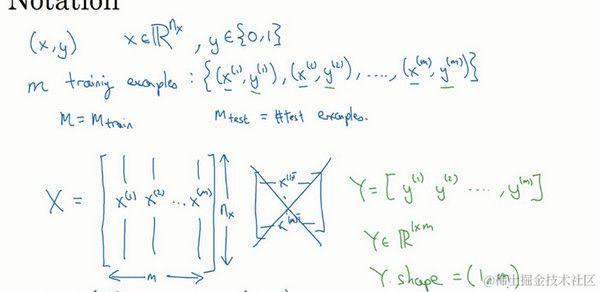 Notation
(x,y) x∈ℝ^{n_x}, y∈{0,1}
m training examples: {(x^{(1)}, y^{(1)}), (x^{(2)}, y^{(2)}), ...., (x^{(m)}, y^{(m)})}
M = M_{train} M_{test} = #test examples.
X = [x^{(1)} x^{(2)} ... x^{(m)}]
n_x
m
x^{(1)T}
x^{(m)T}
Y = [y^{(1)} y^{(2)} ...., y^{(m)}]
Y∈ℝ^{1×m}
Y.shape = (1,m)
@稀土掘金技术社区